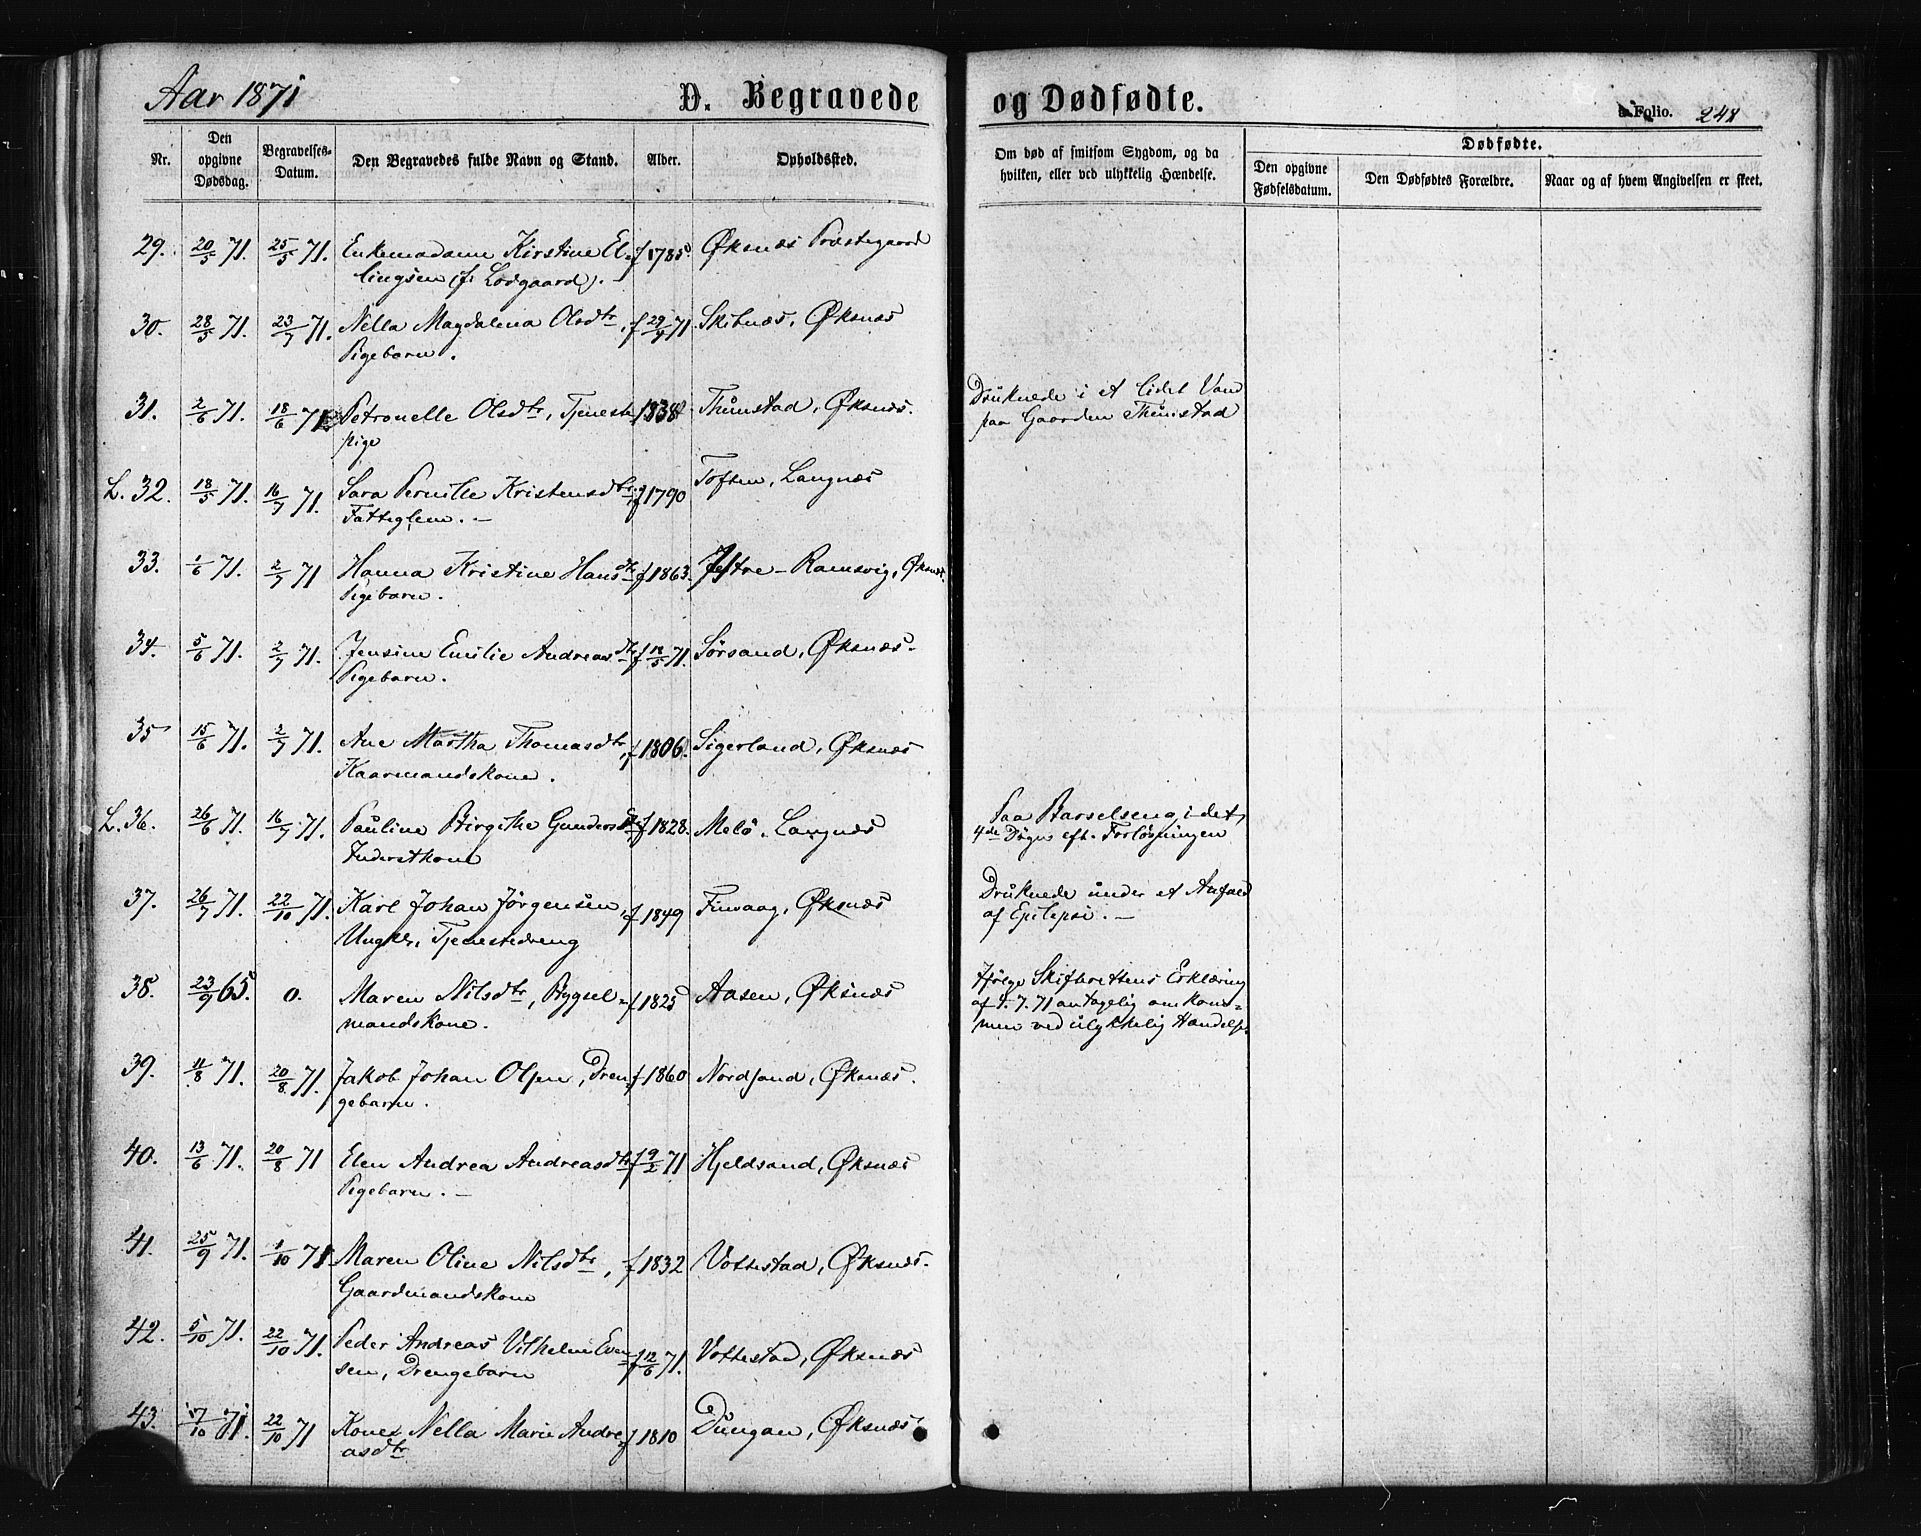 Aar 1871
D. Begravede
og Dødfødte.
Folio. 248
Nr.
Den opgivne Dødsdag.
Begravelses-Datum.
Den Begravedes fulde Navn og Stand.
Alder.
Opholdssted.
Om død af smitsom Sygdom, og da hvilken, eller ved ulykkelig Hændelse.
Dødfødte.
Den opgivne Fødselsdatum.
Den Dødfødtes Forældre.
Naar og af hvem Angivelsen er skeet.
29. 20/5 71. 25/5 71. Enkemadame Kirstine El- f 1785. Øksnæs Præstegaard
lingsen (f. Lodgaard).
30. 28/5 71. 23/7 71. Nella Magdalena Olsdtr, f 29/4 71. Skibnæs, Øksnæs
Pigebarn.
31. 2/6 71. 18/6 71. Petronelle Olsdtr, Tjeneste- 1838 Thünstad, Øksnæs. Drüknede i et lidet Vand
pige paa Gaarden Thünstad
L. 32. 18/5 71. 16/7 71. Sara Pernille Kristensdtr f 1790 Toften, Langnæs
Fattiglem.
33. 1/6 71. 2/7 71 Hanna Kristine Hansdtr f 1863. Ramsvig, Øksnæs.
Pigebarn.
34. 5/6 71. 2/7 71. Jensine Emilie Andreasdtr f 18/5 71. Sørsand, Øksnæs.
Pigebarn.
35 15/6 71. 2/7 71. Ane Martha Thomasdtr, f 1806. Sigerland, Øksnæs
Kaarmandskone.
L. 36. 26/6 71. 16/7 71. Pauline Birgithe Gundersdtr f 1828. Melö, Langnæs Paa Barselseng i det
Inderstkone 4de Døgn eft. Forløsningen
37. 26/7 71. 22/10 71. Karl Johan Jørgensen, f 1849 Finvaag, Øksnæs Drüknede ünder et Anfald
Ungkl., Tjenestedreng af Epilepsi.
38. 23/9 65. 0. Maren Nilsdtr, Bygsel- f 1825 Aasen, Øksnæs Ifølge Skifterettens Erklæring
mandskone. af 7. 71 antagelig omkom-
men ved ülykkelig Hændelse
39. 11/8 71. 20/8 71. Jakob Johan Olsen, Dren- f 1860 Nordsand, Øksnæs.
gebarn.
40. 13/6 71. 20/8 71 Elen Andrea Andreasdtr f 9/2 71 Hjeldsand, Øksnæs
Pigebarn.
41. 25/9 71. 1/10 71. Maren Oline Nilsdtr, f 1832 Vottestad, Øksnæs.
Gaardmandskone
42. 5/10 71. 22/10 71. Peder Andreas Vilhelm Even- f 12/6 71. Vottestad, Øksnæs
sen, Drengebarn
43. 7/10 71. 22/10 71 Kone Nella Marie Andre- f 1810 Düngan, Øksnæs
asdtr